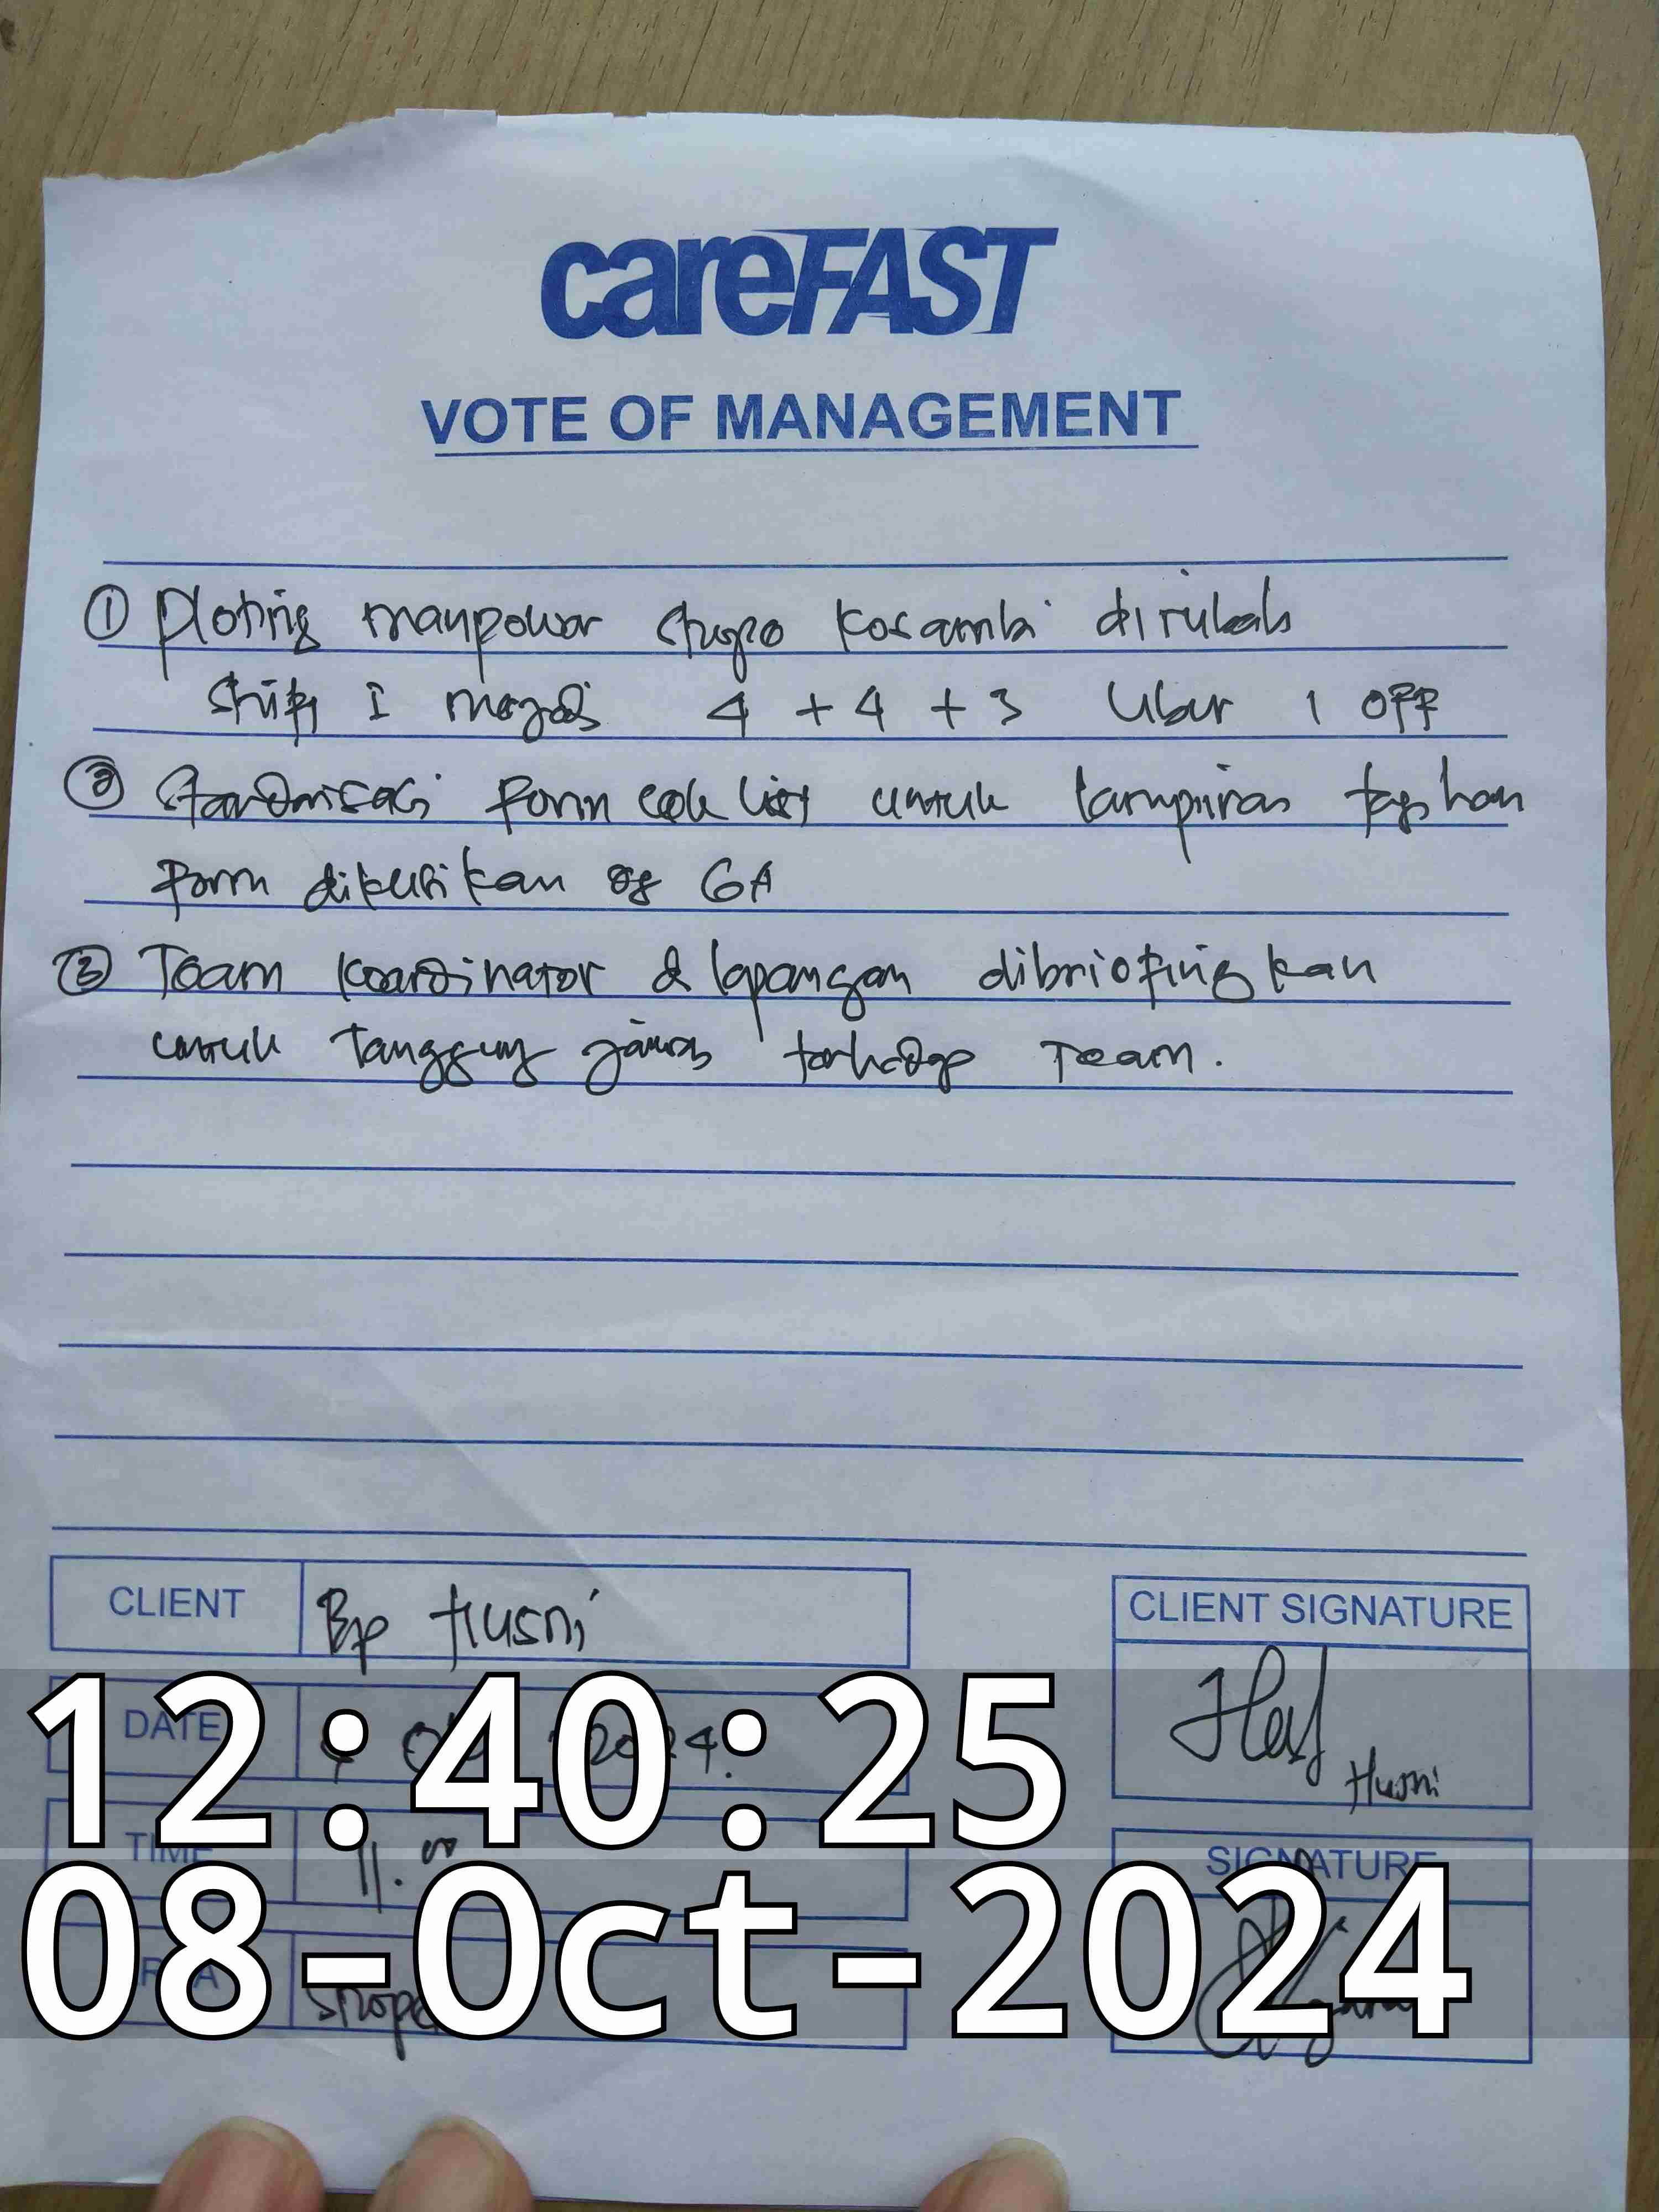 careFAST
VOTE OF MANAGEMENT
① Ploting manpower Kosambi dirubah
Shift I 4 + 4 + 3 Libur 1 OFF
② form cek list untuk lampiran
form GA
③ Team Koordinator & lapangan dibriefingkan
untuk Tanggung jawab terhadap Team.
CLIENT Bp Husni
CLIENT SIGNATURE
Husni
DATE 2024
12:40:25
TIME 11.00
SIGNATURE
08-Oct-2024